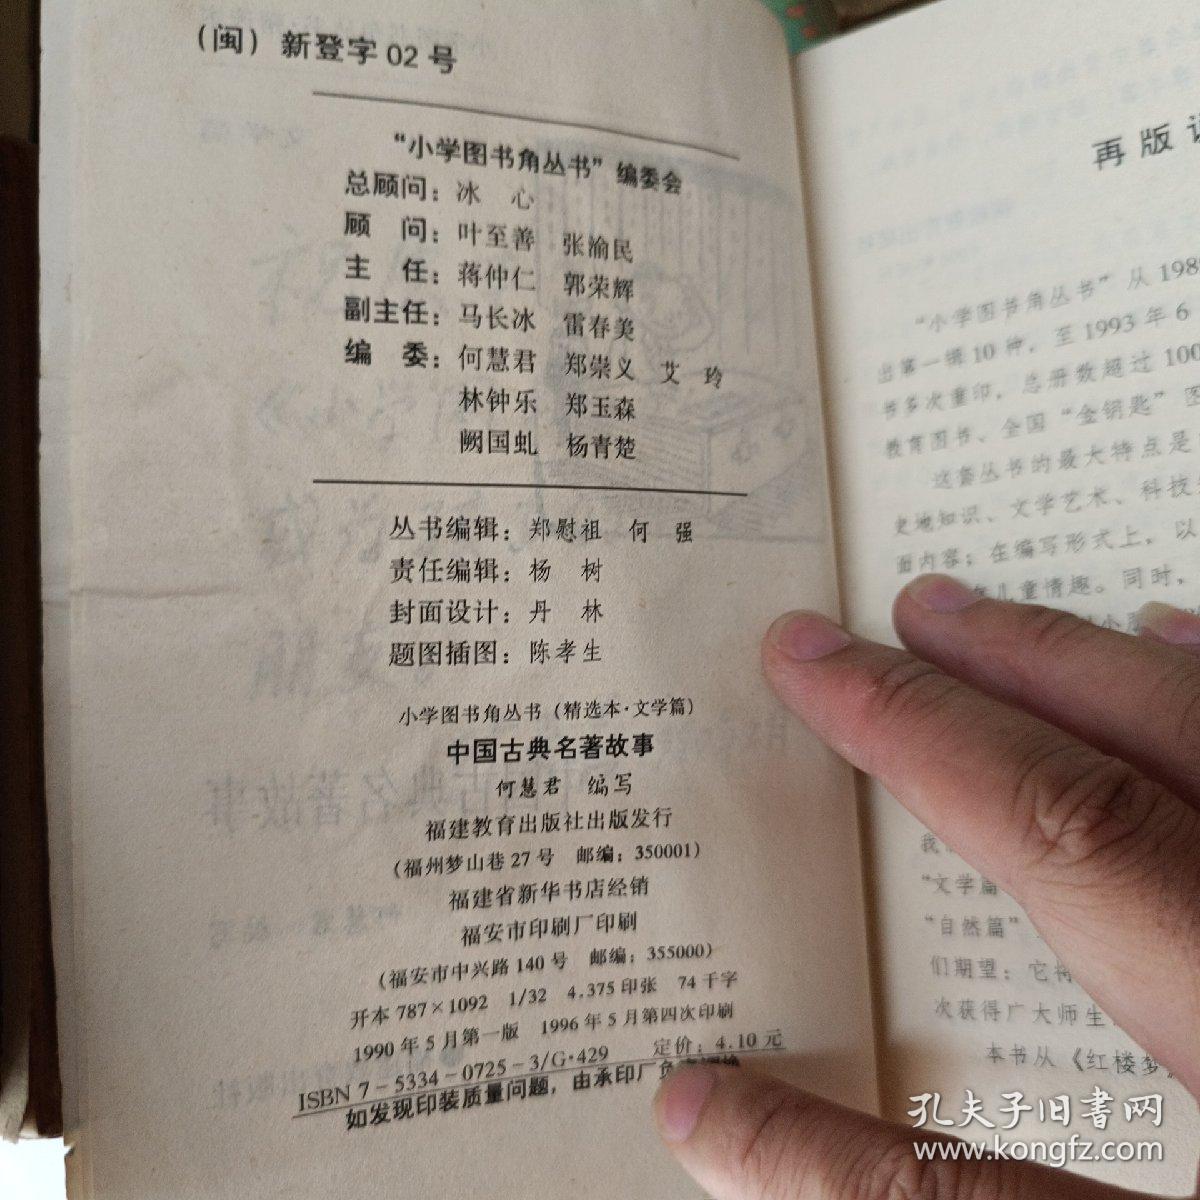 (闽) 新登字 02 号
“小学图书角丛书” 编委会
总顾问：冰 心
顾 问：叶至善 张渝民
主 任：蒋仲仁 郭荣辉
副主任：马长冰 雷春美
编 委：何慧君 郑崇义 艾 玲
林钟乐 郑玉森
阙国虬 杨青楚
丛书编辑：郑慰祖 何 强
责任编辑：杨 树
封面设计：丹 林
题图插图：陈孝生
小学图书角丛书（精选本·文学篇）
中国古典名著故事
何慧君 编写
福建教育出版社出版发行
（福州梦山巷 27 号 邮编：350001）
福建省新华书店经销
福安市印刷厂印刷
（福安市中兴路 140 号 邮编：355000）
开本 787×1092 1/32 4.375 印张 74 千字
1990 年 5 月第一版 1996 年 5 月第四次印刷
ISBN 7－5334－0725－3/G·429 定价：4.10 元
如发现印装质量问题，由承印厂负责调换
再版
“小学图书角丛书”从 198
出第一辑 10 种，至 1993 年 6
书多次重印，总册数超过 100
教育图书、全国“金钥匙”图
这套丛书的最大特点是
史地知识、文学艺术、科技
面内容；在编写形式上，以
儿童情趣。同时，
“文学篇
“自然篇”
们期望：它将
次获得广大师生
本书从《红楼梦》
孔夫子旧书网
www.kongfz.com